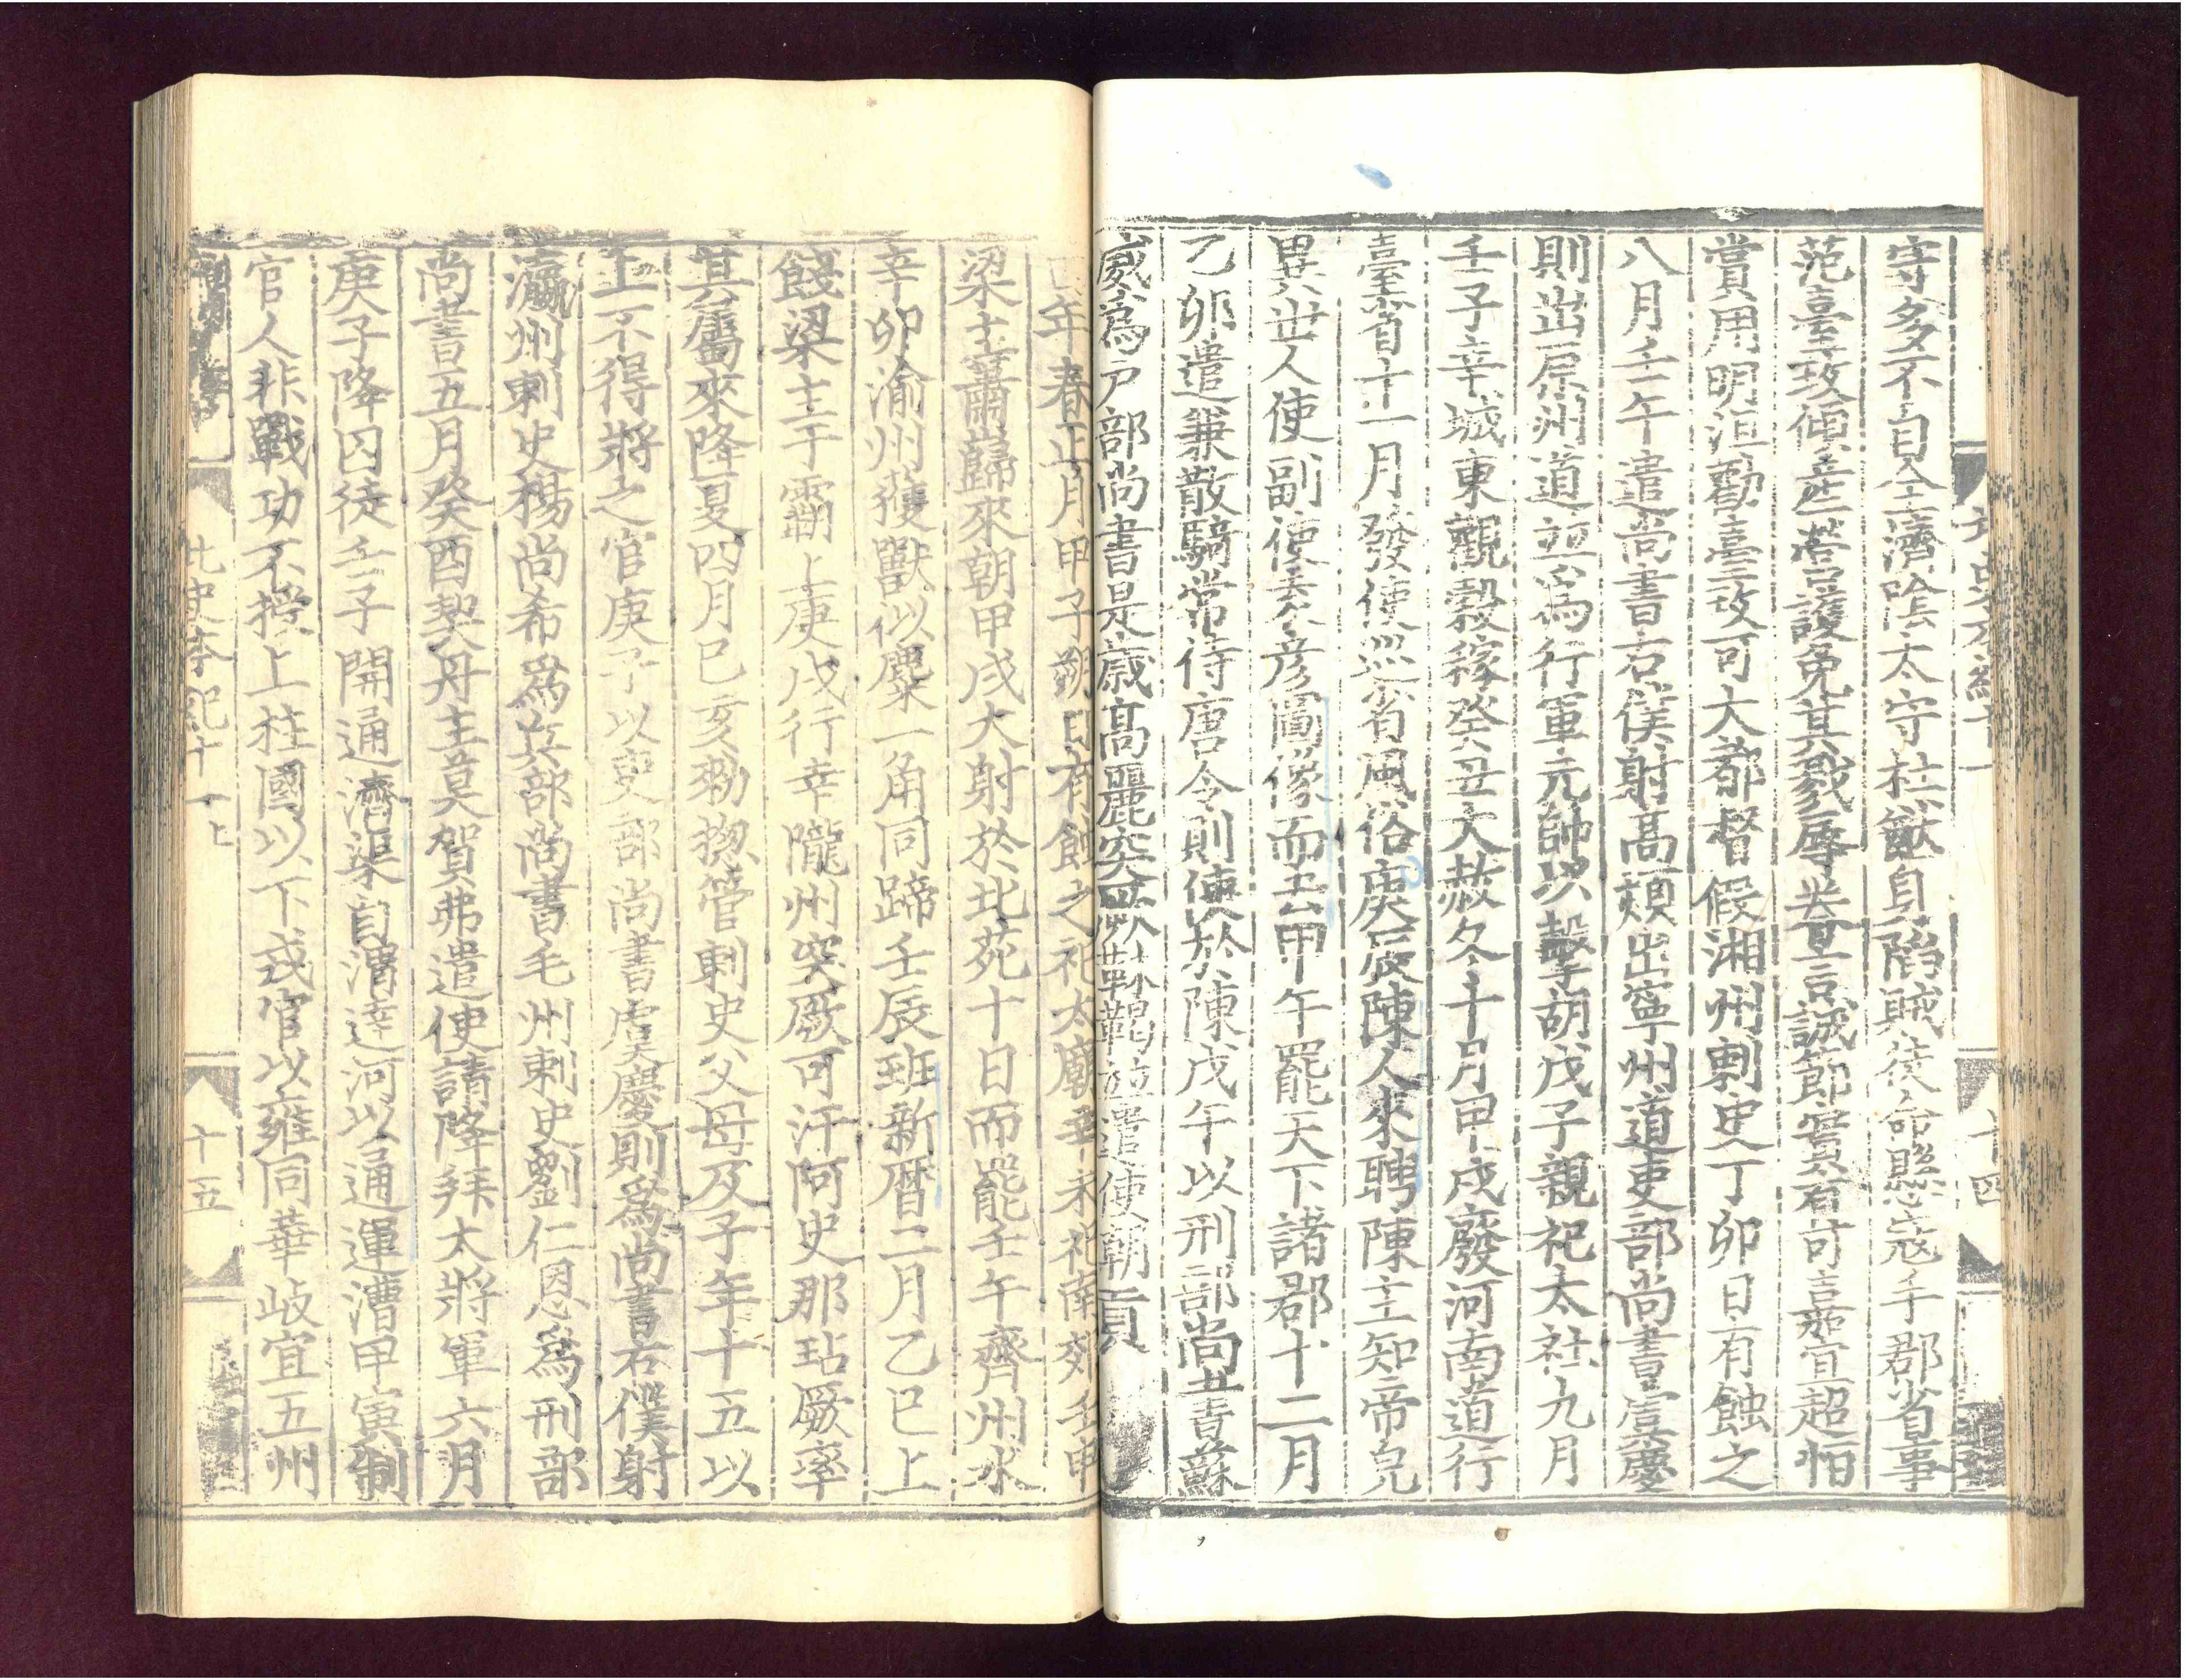 守多不自全濟陰太守杜猷身陷賊徒命懸寇手郡省事
范臺玫傾產營護免其戮辱眷言誠節實有可嘉宜超恒
賞用明沮勸臺玫可大都督假湘州刺史丁卯日有蝕之
八月壬午遣尚書右僕射高熲出寧州道吏部尚書虞慶
則出原州道並爲行軍元帥以擊胡戊子親祀太社九月
壬子幸城東觀穀稼癸丑大赦冬十月甲戌廢河南道行
臺省十一月發使巡省風俗庚辰陳人來聘陳主知帝皃
異世人使副使袁彦圖像而去甲午罷天下諸郡十二月
乙卯遣兼散騎常侍唐令則使於陳戊午以刑部尚書蘇
威爲户部尚書是歲髙麗突厥靺鞨並遣使朝貢
年春正月甲子朔日有蝕之祀太廟辛未祀南郊壬申
梁主蕭巋來朝甲戌大射於北苑十日而罷壬午齊州水
辛卯渝州獲獸似麋一角同蹄壬辰班新曆二月乙巳上
餞梁主于霸上庚戌行幸隴州突厥可汗阿史那玷厥率
其屬來降夏四月巳亥勑揔管刺史父母及子年十五以
上不得將之官庚子以吏部尚書虞慶則爲尚書右僕射
瀛州刺史楊尚希爲兵部尚書毛州刺史劉仁恩爲刑部
尚書五月癸酉契丹主莫賀弗遣使請降拜太將軍六月
庚子降囚徒壬子開通濟渠自渭達河以通運漕甲寅制
官人非戰功不授上柱國以下戎官以雍同華岐宜五州
北史本紀十一
十五